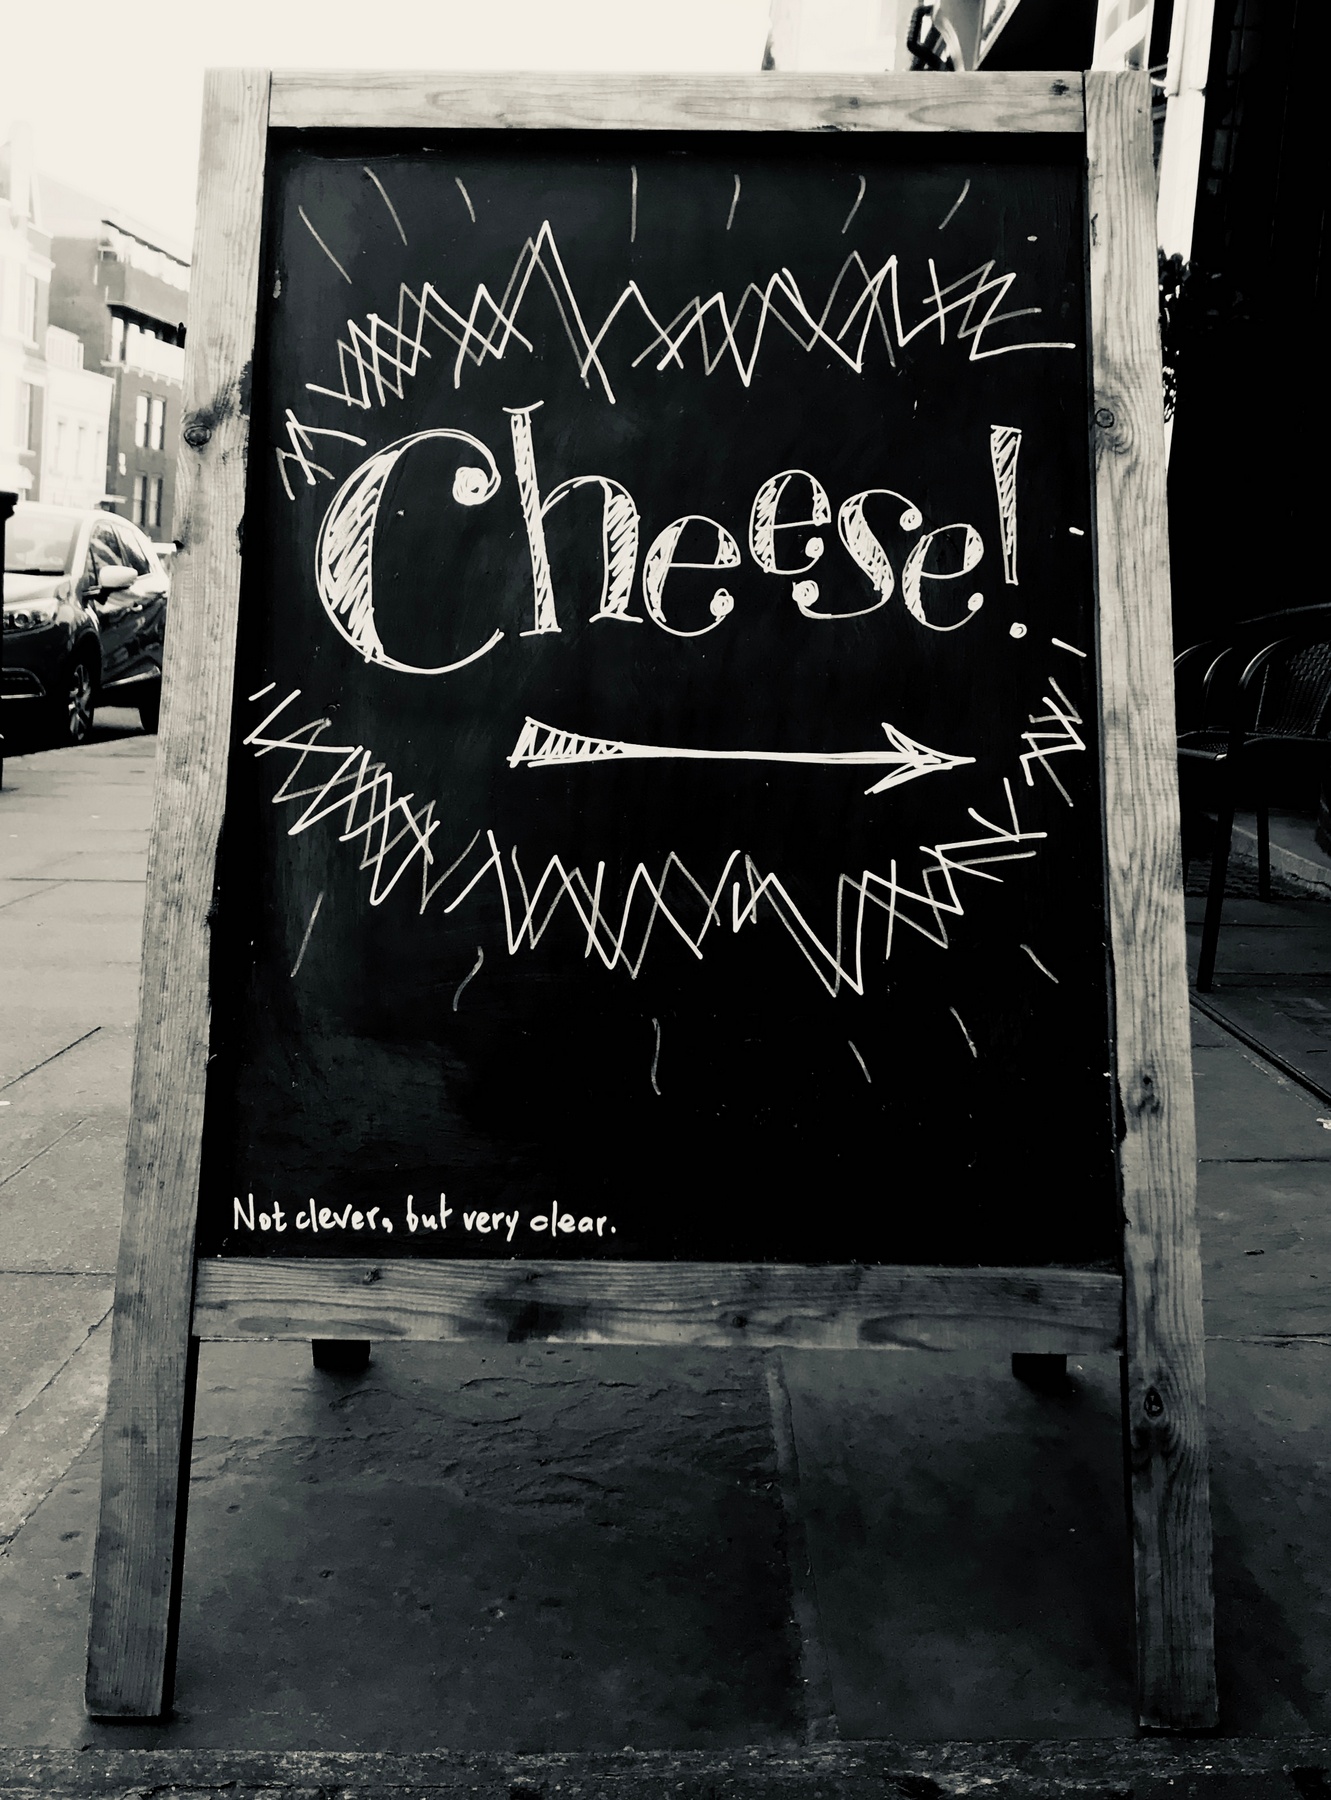 Cheese!
Not clever, but very clear.